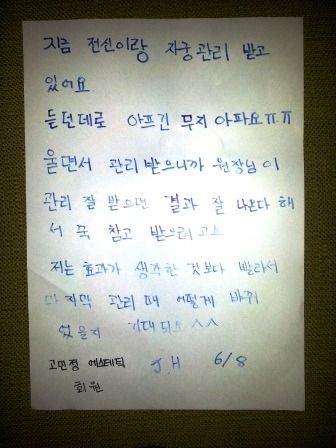 지금 전신이랑 자궁관리 받고
있어요
듣던데로 아프긴 무지 아파요ㅠㅠ
울면서 관리 받으니까 원장님이
관리 잘 받으면 결과 잘 나온다 해
서 꾹 참고 받으려고요
저는 효과가 생각한 것보다 빨라서
마지막 관리 때 어떻게 바뀌
었을지 기대되요 ^^
고민정 에스테틱 J.H 6/8
회원